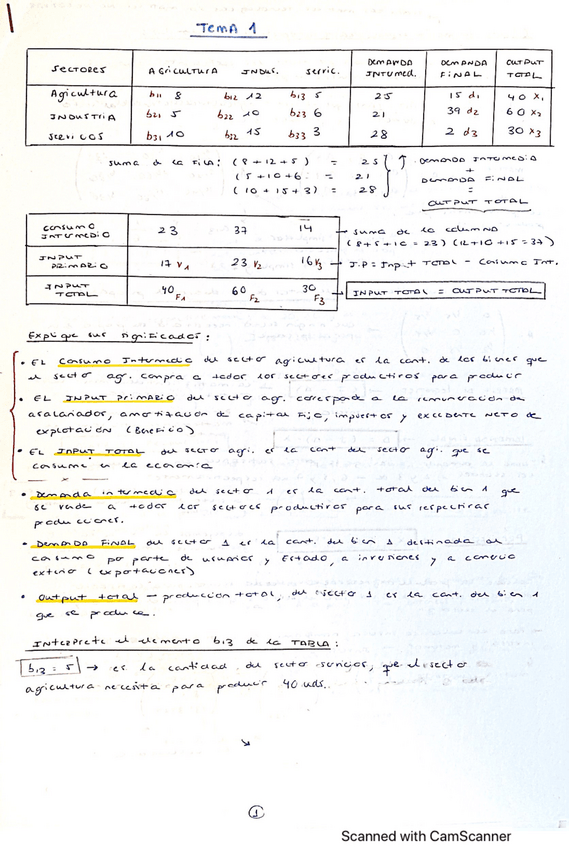 TEMA 1
SECTORES AGRICULTURA INDUS. SERVIC. DEMANDA INTUMED. DEMANDA FINAL OUTPUT TOTAL
Agricultura b11 8 b12 12 b13 5 25 15 d1 40 x1
INDUSTRIA b21 5 b22 10 b23 6 21 39 d2 60 x2
SERVICOS b31 10 b32 15 b33 3 28 2 d3 30 x3
suma de la fila: (8+12+5) = 25 DEMANDA INTUMEDIA
(5+10+6 = 21 + DEMANDA FINAL
(10+15+3) = 28 =
OUTPUT TOTAL
CONSUMO INTUMEDIO 23 37 14 → suma de la columna
(8+5+10=23) (12+10+15=37)
INPUT PRIMARIO 17 V1 23 V2 16 V3 → I.P = Input TOTAL - Consumo Int.
INPUT TOTAL 40 F1 60 F2 30 F3 → INPUT TOTAL = OUTPUT TOTAL
Explique sus significados:
• EL Consumo Intermedio del sector agricultura es la cant. de los bienes que
el sector ag. compra a todos los sectores productivos para producir
• EL INPUT PRIMARIO del sector ag. corresponde a la remuneración de
asalariados, amortización de capital fijo, impuestos y excedente neto de
explotación (Beneficio)
• EL INPUT TOTAL del sector agri. es la cant del sector agi. que se
consume en la economía
• Demanda intermedia del sector 1 es la cant. total del bien 1 que
se vende a todos los sectores productivos para sus respectivas
producciones.
• DEMANDA FINAL del sector 1 es la cant. del bien 1 destinada al
consumo por parte de usuarios y Estado, a inversiones y a comercio
exterior (exportaciones)
• Output total — producción total, del sector 1 es la cant. del bien 1
que se produce.
INTERPRETE el elemento b13 de la TABLA:
b13 = 5 → es la cantidad del sector servicios, que el sector
agricultura necesita para producir 40 uds.
1
Scanned with CamScanner